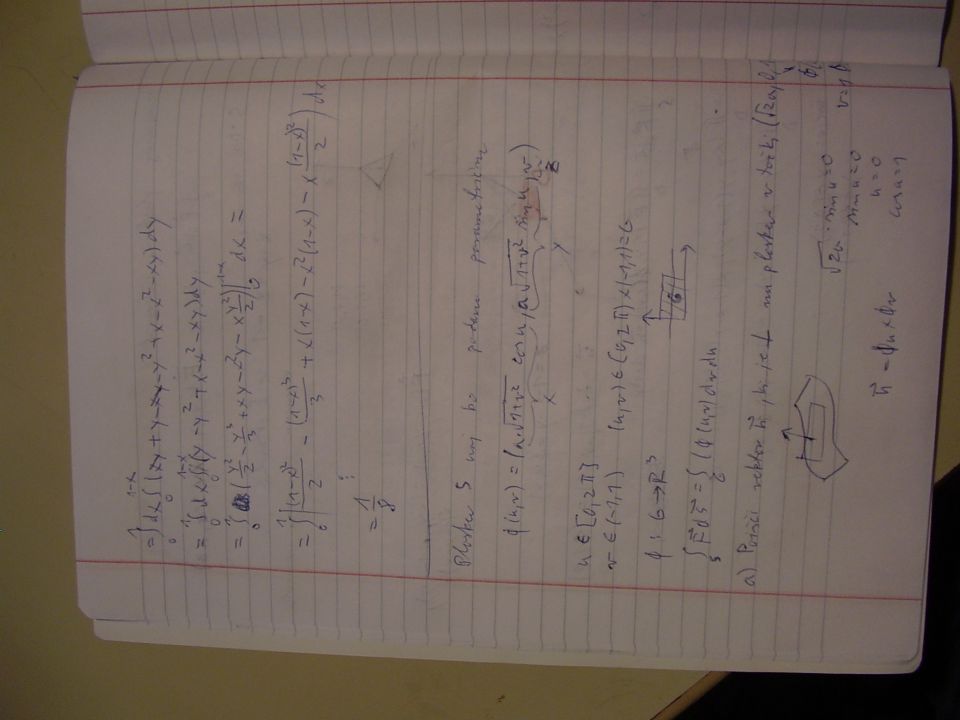 = ∫₀¹ dx ∫₀^(1-x) (xy + y - xy - y² + x - x² - xy) dy
= ∫₀¹ dx ∫₀^(1-x) (y - y² + x - x² - xy) dy
= ∫₀¹ (y²/2 - y³/3 + xy - x²y - x y²/2)|₀^(1-x) dx =
= ∫₀¹ ((1-x)²/2 - (1-x)³/3 + x(1-x) - x²(1-x) - x (1-x)²/2) dx
⋮
= 1/8
Ploskev S naj bo podana parametrično
ϕ(u,v) = (a√(1+v²) cos u, a√(1+v²) sin u, v)
x y z
u ∈ [0, 2π]
v ∈ (-1, 1) (u,v) ∈ [0, 2π] × (-1, 1) = G
ϕ : G → R³
G
∫_S F⃗ dS⃗ = ∫_G (ϕ(u,v) dv du
a) Poišči vektor n⃗, ki je ⊥ na ploskev v točki (√2a, 0, 1
√2a · sin u = 0
sin u = 0
u = 0
cos u = 1
v = 1
n⃗ = ϕu × ϕv